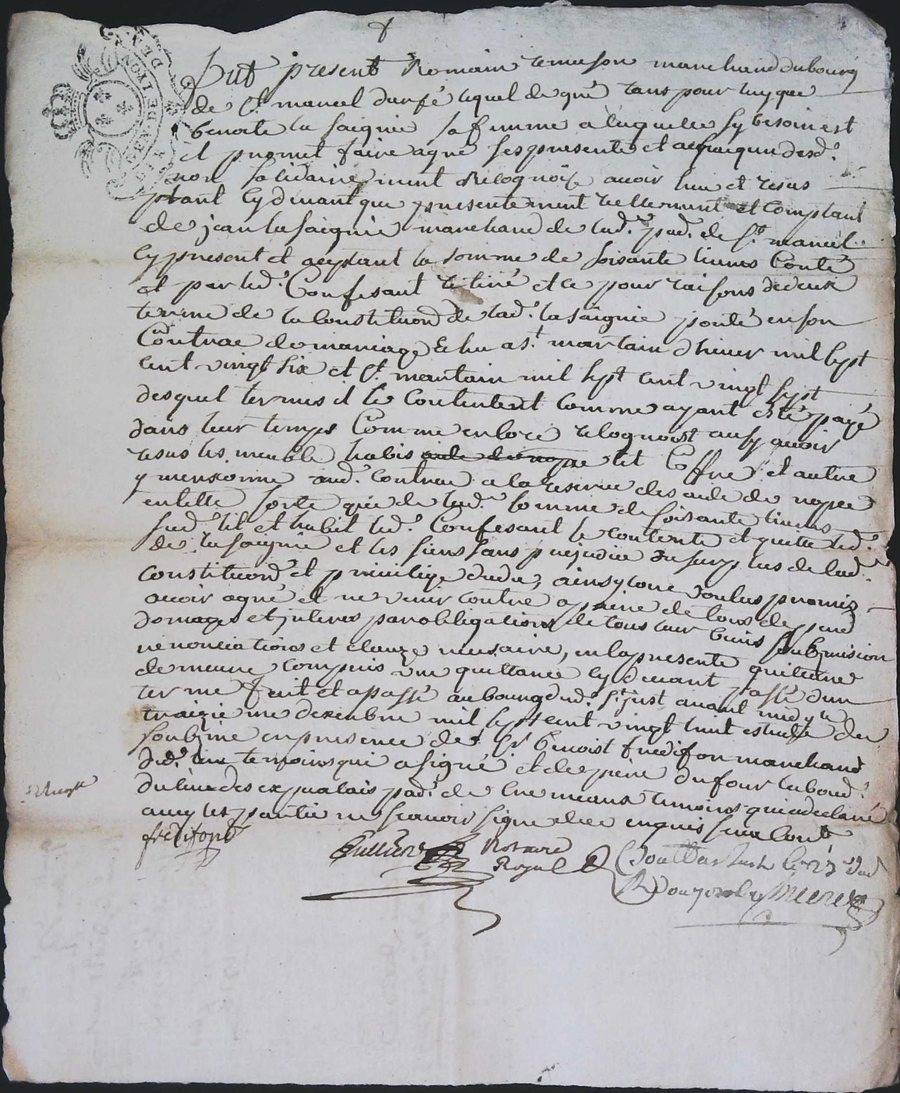 GEN. DE LYON
fut present Romain marchand du bourg
de St marcel durfé lequel de gré tant pour luy que
benoite la saignie sa femme a laquelle sy besoin est
et promet faire agreé ses presente et a quiqun desd.
non solidairement Recognoise avoir heu et resus
ptant cydevant que presentement rellement et comptant
de jean la saignie marchand de lad. pad. de St marcel
cy present et aceptant la somme de soisante livres Conté
et par led. Confesant retiré et ce pour raisons de deux
terme de la Constitution de lad. la saignie porté en son
Contrac de mariage Echu a St martain dhiver mil sept
cent vingt six et St martain mil sept cent vingt sept
desquel termes il se Contentent comme ayant eté payé
dans leur temps Comme encore recognoist ausy avoir
resus les meuble habis aude de nope lit Coffre et autre
y mensionne aud. Contrac a la reserve des aude de nopce
en telle sorte que de lad. somme de soisante livres
sud. lit et habit led. Confesant se contente et quitte led.
de la saignie et les siens sans prejudice du surplus de lad.
Constitution et privilege dicelle, ainsy voulus promis
avoir agreé et ne venir contre a peine de tous depend
domages et interes par obligations de tous leur biens submision
renonciations et clauze nesaire, en la presente quittance
demeure compris une quittance cy devant passé dun
terme fait et a passé au bourg dud. St just avant midy le
traizieme dexembre mil sept cent vingt huit
soubzine en presence de Sr benoist fredifon marchand
dud. lieu temoins qui a signé et de piere dufour labour.
du lieu des pad. de temoins qui a declaré
avec les partie ne scavoir signe de ce enquis suivant
fredifont
Notaire
Royal